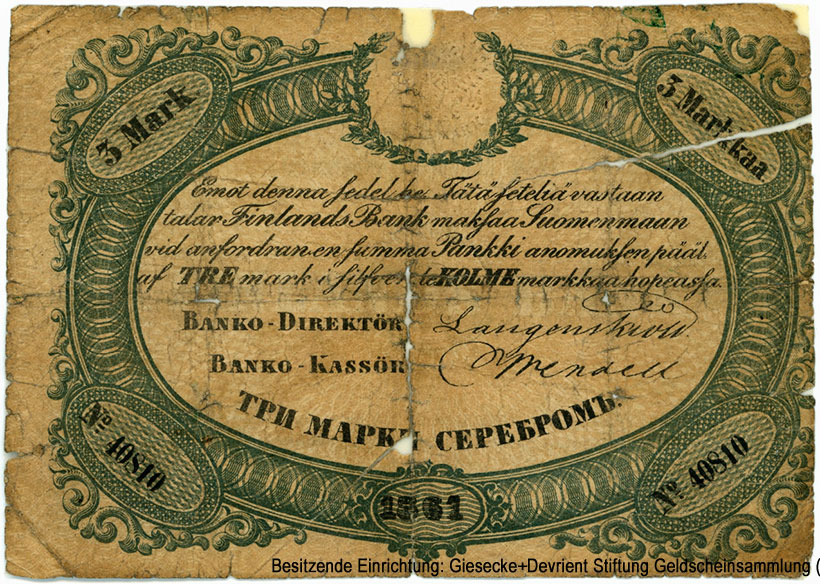 3 Mark
3 Markkaa
Emot denna sedel be Tätä seteliä vastaan
talar Finlands Bank maksaa Suomenmaan
vid anfordran en summa Pankki anomuksen pääl
af TRE mark i silfver te KOLME markkaa hopeassa.
BANKO-DIREKTÖR Langenskiöld.
BANKO-KASSÖR Wendell
ТРИ МАРКИ СЕРЕБРОМЪ.
No 40810
No 40810
1861
Besitzende Einrichtung: Giesecke+Devrient Stiftung Geldscheinsammlung (